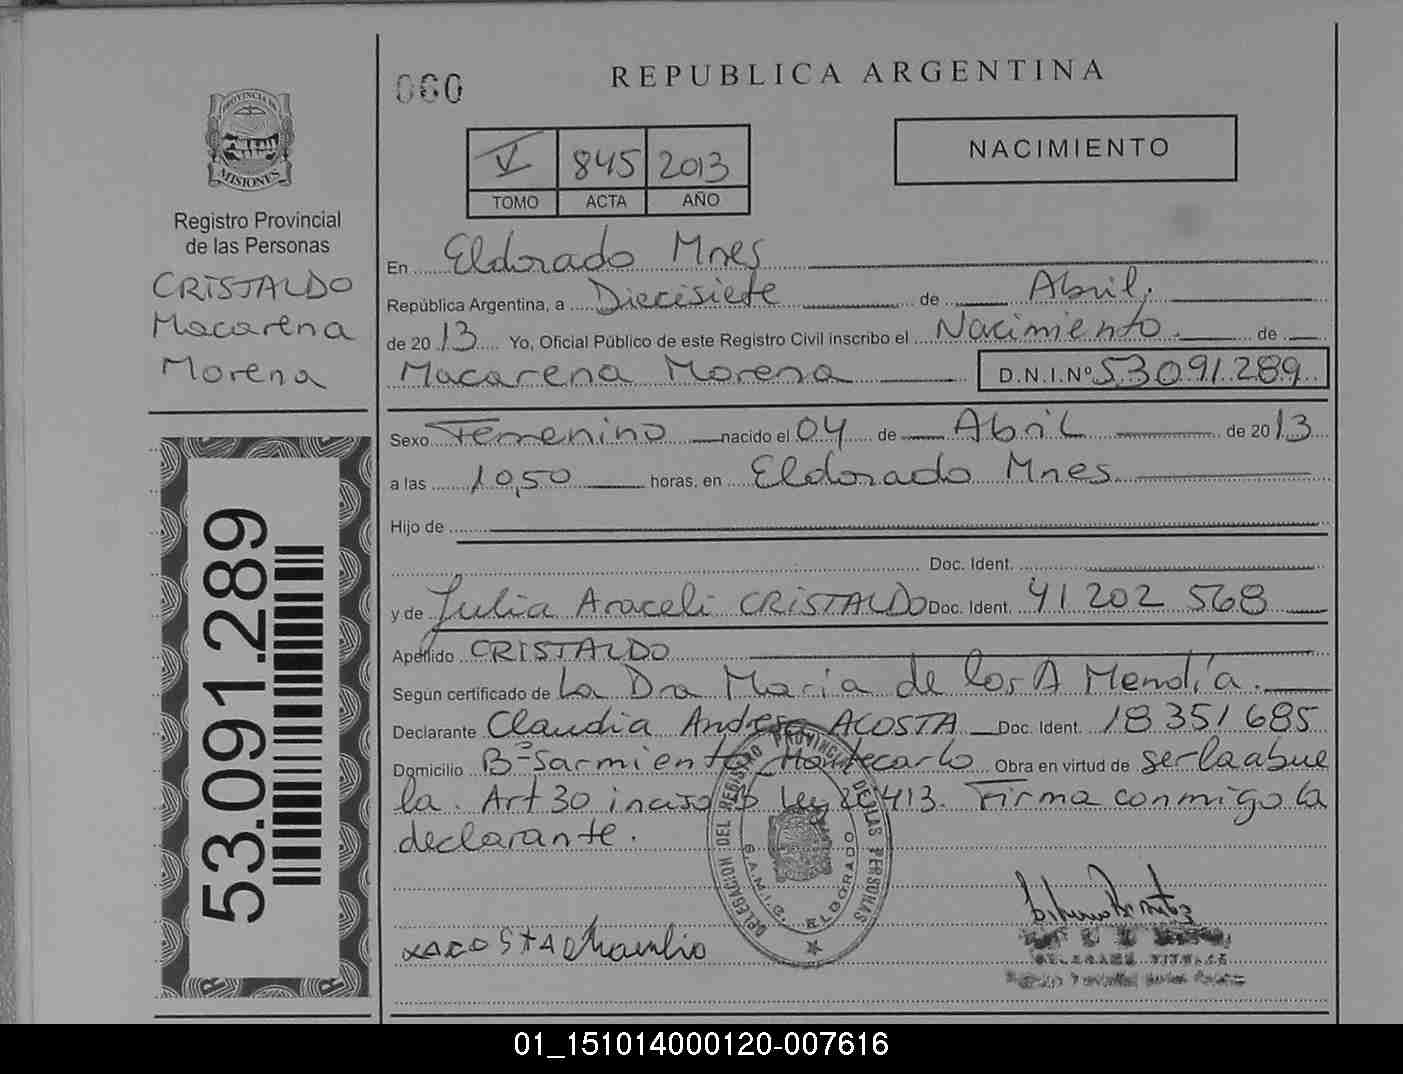 060
REPUBLICA ARGENTINA
PROVINCIA DE
MISIONES
Registro Provincial
de las Personas
CRISTALDO
Macarena
Morena
V 845 2013
TOMO ACTA AÑO
NACIMIENTO
En Eldorado Mnes
República Argentina, a Diecisiete de Abril.
de 2013 Yo, Oficial Público de este Registro Civil inscribo el Nacimiento de
Macarena Morena D.N.I.Nº 53091289
Sexo Femenino nacido el 04 de Abril de 2013
a las 10,50 horas, en Eldorado Mnes
Hijo de
Doc. Ident.
y de Julia Araceli CRISTALDO Doc. Ident. 41 202 568
Apellido CRISTALDO
Según certificado de La Dra Maria de los A Mendía.
Declarante Claudia Andresa ACOSTA Doc. Ident. 18 351 685
Domicilio Bº Sarmiento Montecarlo Obra en virtud de ser la abue
la. Art 30 inciso b Ley 26413. Firma conmigo la
declarante.
53.091.289
DELEGACION DEL REGISTRO PROVINCIAL DE LAS PERSONAS
ELDORADO
ACOSTA
01_151014000120-007616